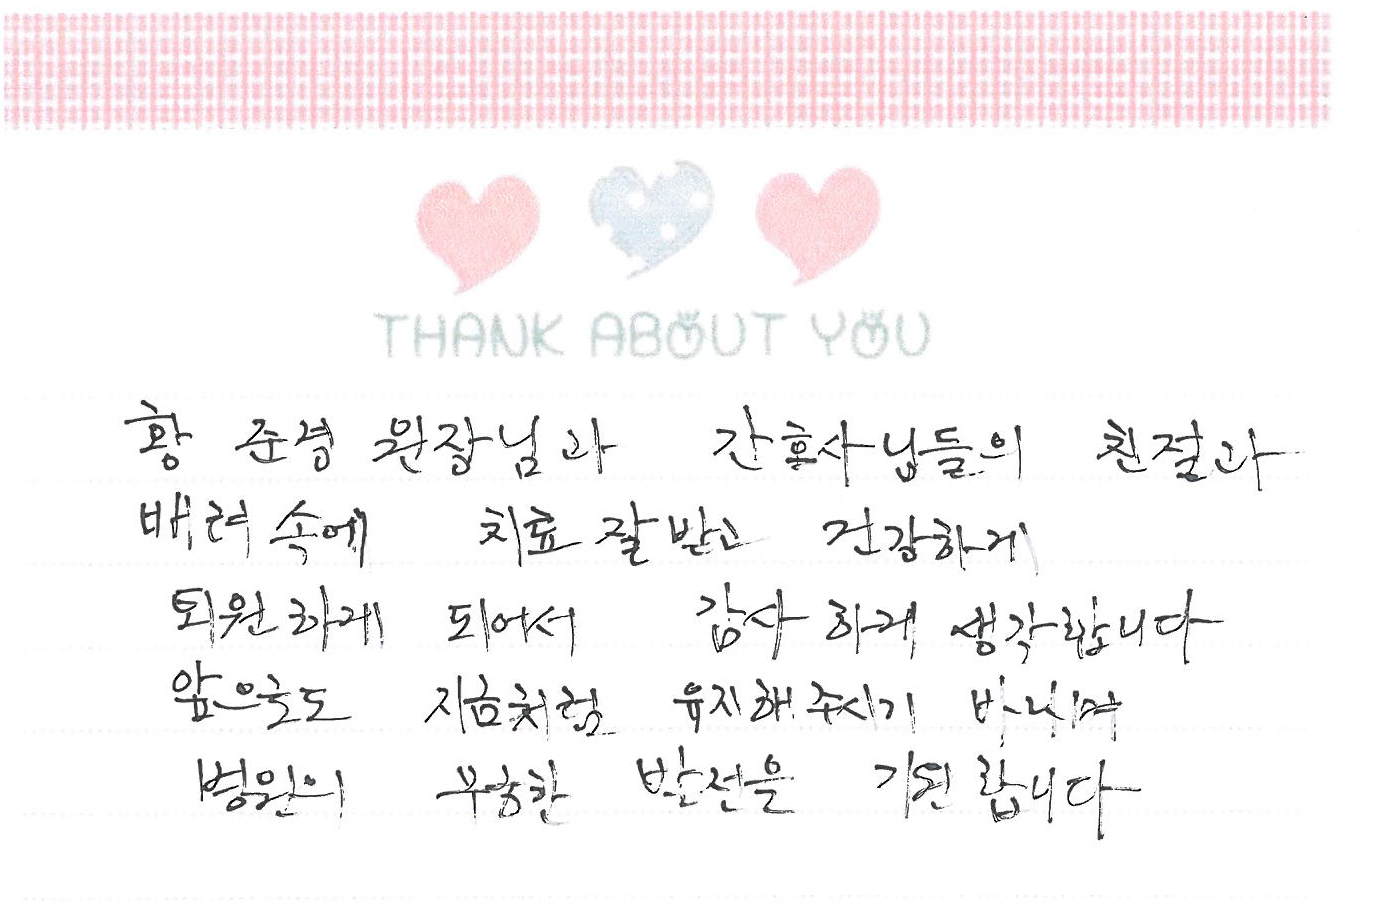 THANK ABOUT YOU
황 준경 원장님과 간호사님들의 친절과
배려 속에 치료 잘 받고 건강하게
퇴원하게 되어서 감사하게 생각합니다
앞으로도 지금처럼 유지해 주시기 바라며
병원의 무궁한 발전을 기원 합니다